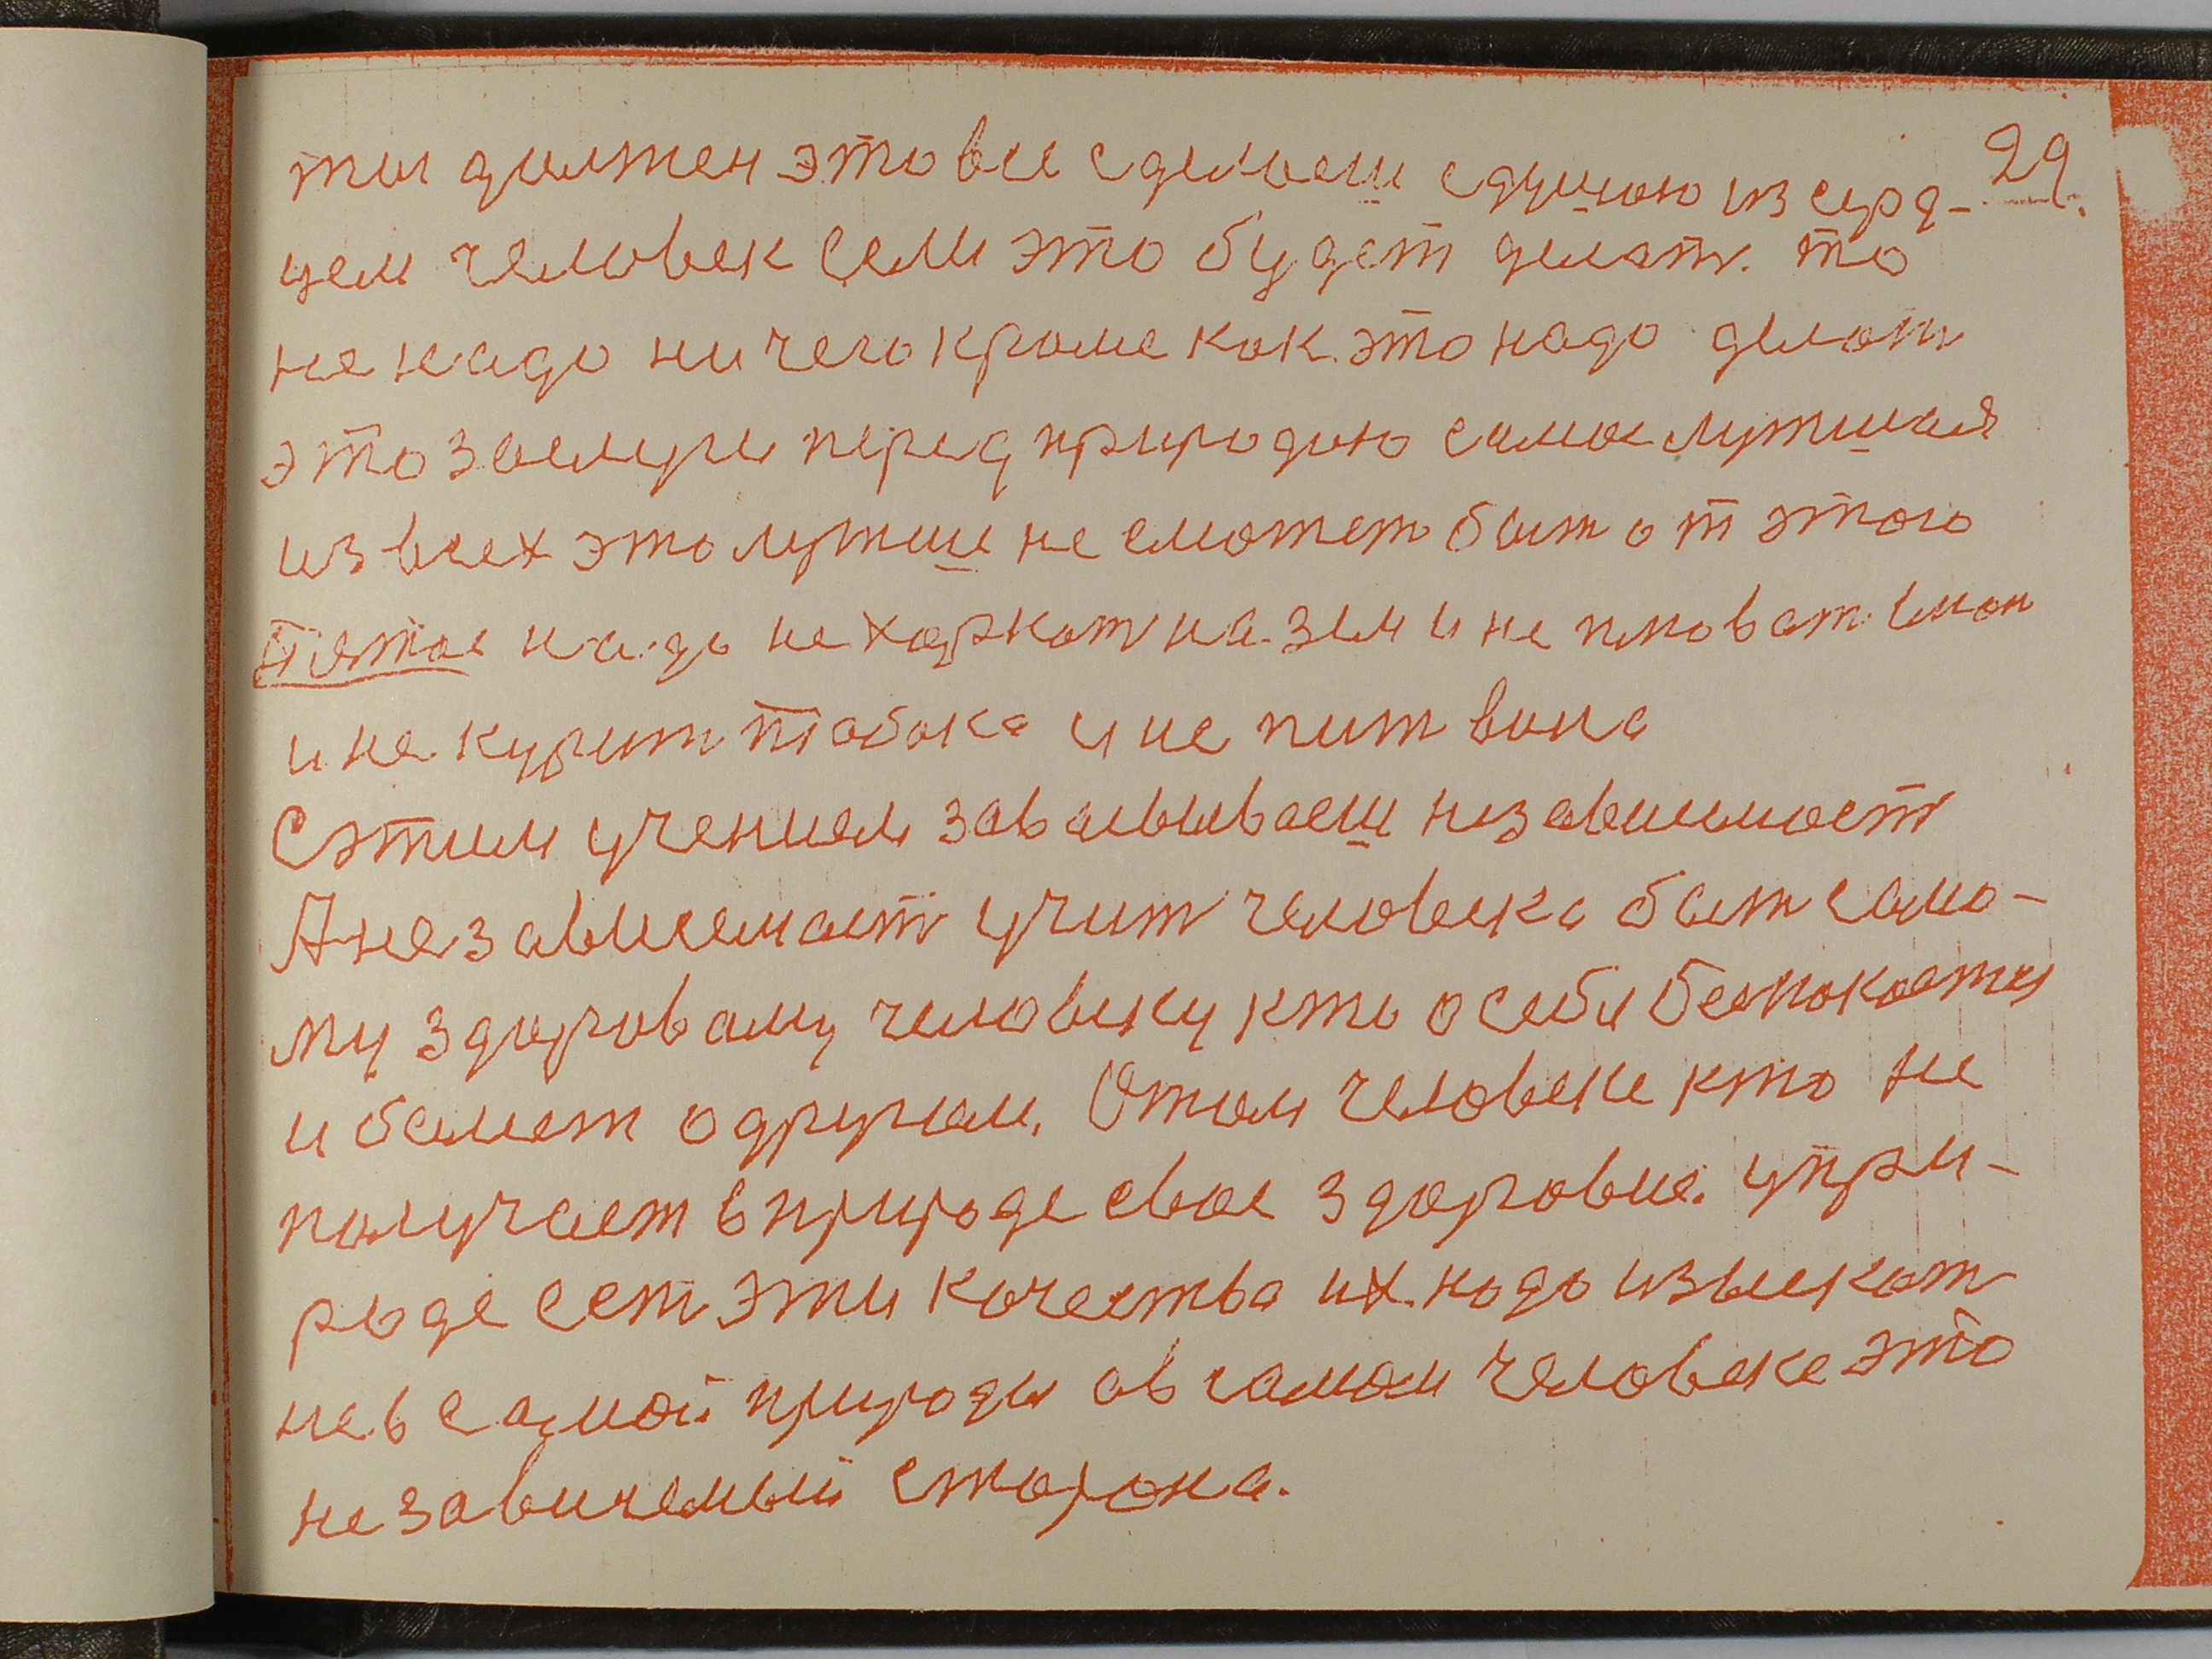 ты должен это все сделаеш сдушою из серд- 29.
цем человек если это будет делать. то
не надо ни чего кроме как это надо делать
это заслуги перед природою самое лутшая
из всех это лутше не сможет быт от этого
Пятое надо не харкать на земи и не плюват
и не курит табака и не пит вина
С этим учением завоевываеш независимост
А независемост учит человека быт само-
му здоровому человеку кто о себе беспокоется
и болеет о другом. О том человеке кто не
получает в природе свое здоровие. у при-
роде сет эти качества их надо извлекать
не в самой природы а в самом человеке это
не зависемый сторона.